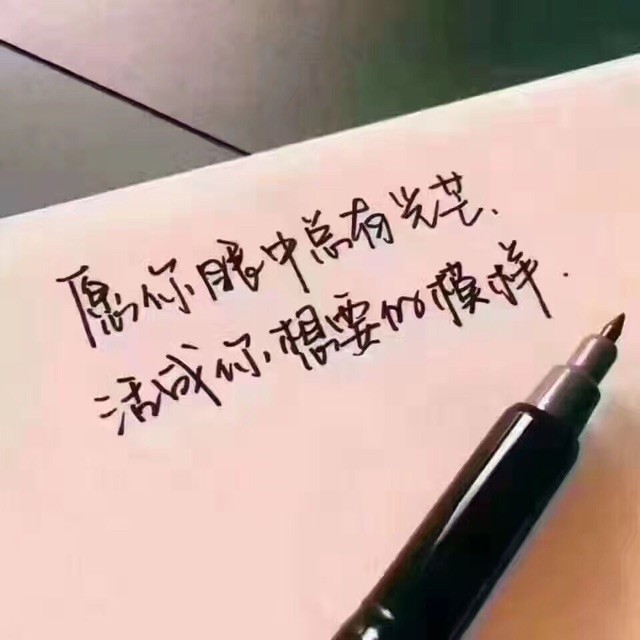 愿你眼中总有光芒、
活成你想要的模样.